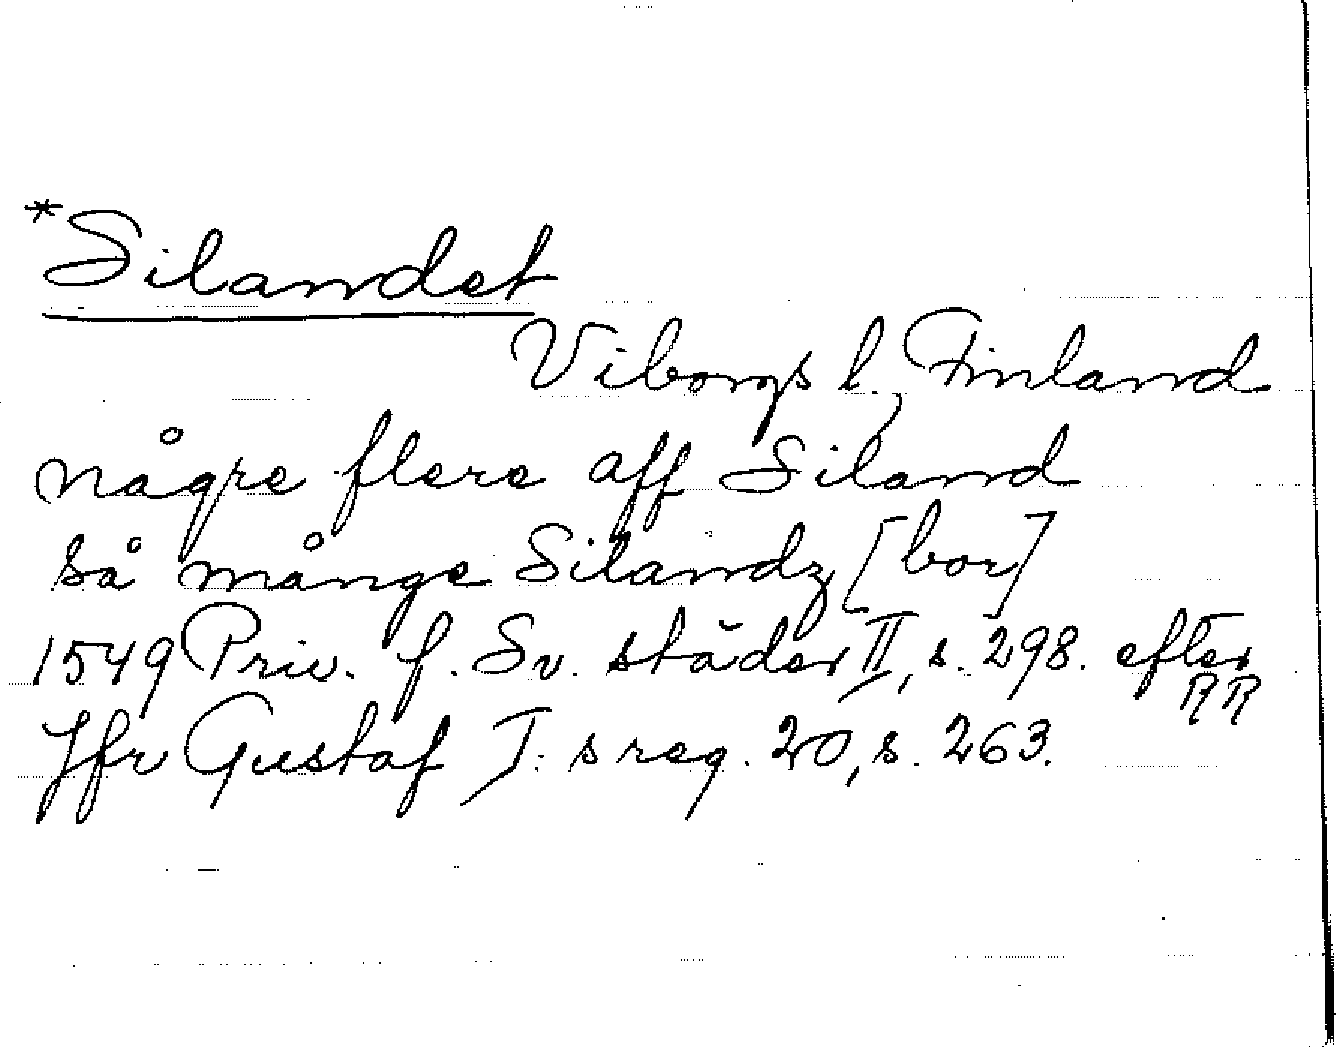 *Silandet
Viborgs l., Finland
någre flere aff Siland
så månge Silandz [bor]
1549 Priv. f. Sv. städer II, s. 298. efter
RR
Jfr Gustaf I:s reg. 20, s. 263.